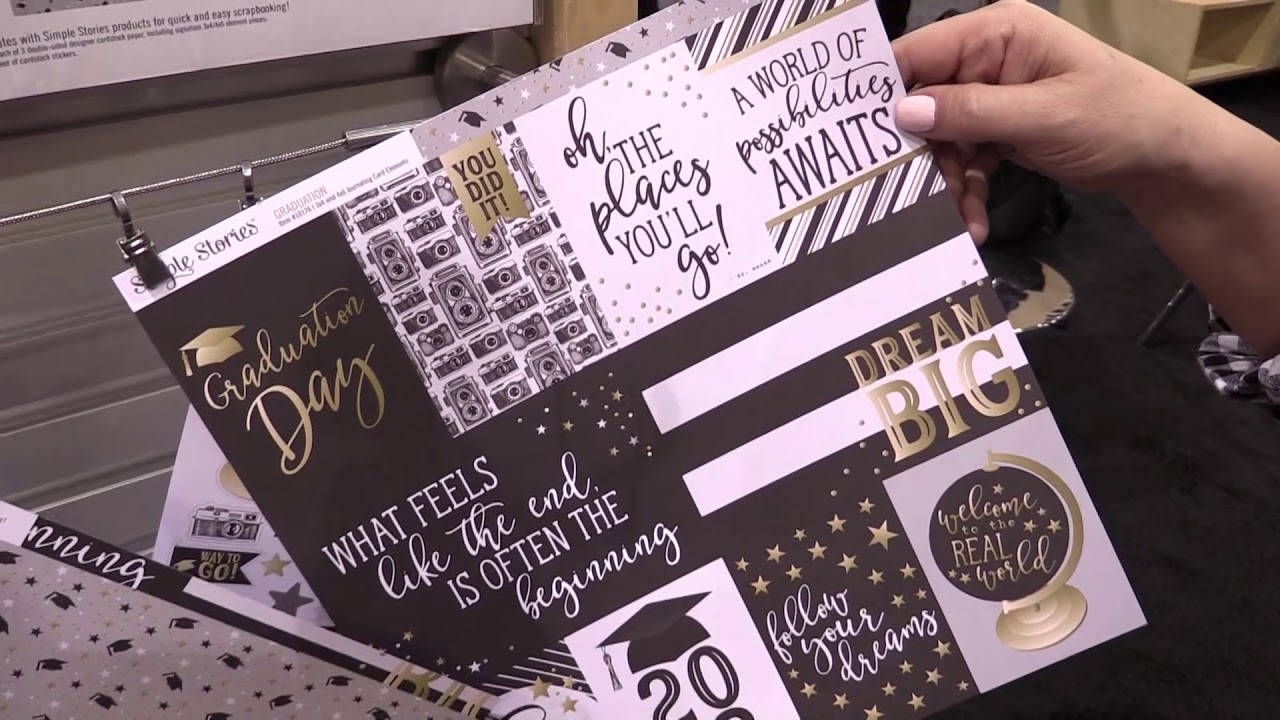 ples with Simple Stories products for quick and easy scrapbooking!
each of 3 double-sided designer cardstock paper, including signature 3x4/4x6 element pieces.
of cardstock stickers.
Simple Stories
GRADUATION
Item #10176 | 3x4 and 4x6 Journaling Card Elements
Graduation
Day
YOU
DID
IT!
oh,
THE
places
YOU'LL
go!
A WORLD OF
possibilities
AWAITS
DREAM
BIG
WHAT FEELS
like the end,
IS OFTEN THE
beginning
20
follow
your
dreams
welcome
to the
REAL
world
WAY TO
GO!
nning